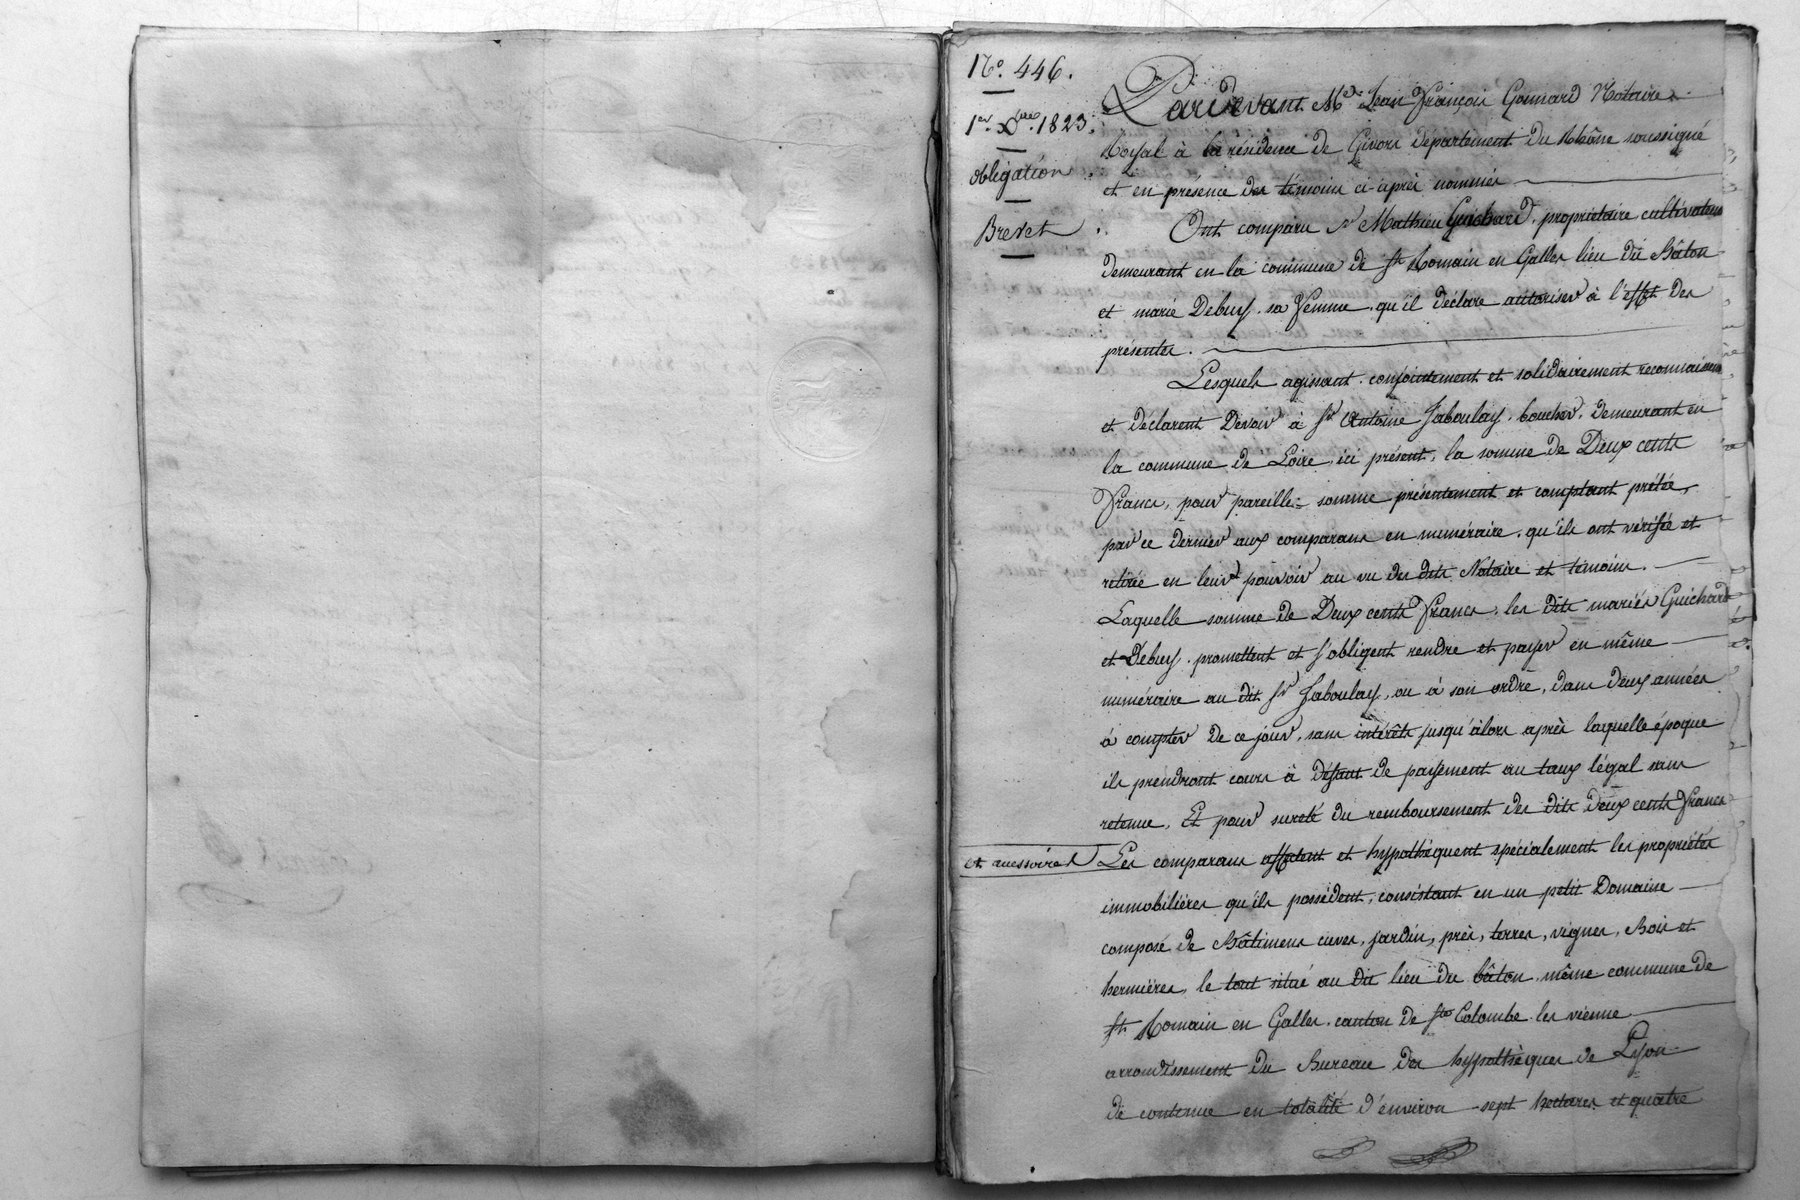 N.o 446.
1er Xbre 1823.
obligation
Brevet
Pardevant Me Jean François Gonnard Notaire
Royal à la résidence de Givors département du Rhône soussigné
et en présence des témoins ci-après nommés
Ont comparu sr Mathieu Guichard, propriétaire cultivateur
demeurant en la commune de St Romain en Galles lieu du Bâton
et marie Debuy, sa femme, qu'il déclare autoriser à l'effet des
présentes.
Lesquels agissant conjointement et solidairement reconnaissent
et déclarent devoir à Sr Antoine Jaboulay, boucher, demeurant en
la commune de Loire, ici présent, la somme de Deux cents
francs, pour pareille somme présentement et comptant prêtée,
par ce dernier aux comparans en numéraire, qu'ils ont vérifié et
retirée en leur pouvoir au vu des dits Notaire et témoins.
Laquelle somme de Deux cents francs, les dits mariés Guichard
et Debuy, promettent et s'obligent rendre et payer en même
numéraire au dit Sr Jaboulay, ou à son ordre, dans deux années
à compter de ce jour, sans intérêts jusqu'alors après laquelle époque
ils prendront cours à défaut de payement au taux légal sans
retenue. Et pour sureté du remboursement des dits deux cents francs
et accessoires Les comparans affectent et hypothèquent spécialement les propriétés
immobilières qu'ils possèdent, consistant en un petit Domaine
composé de Bâtimens cuves, jardin, près, terres, vignes, Bois et
hermières, le tout situé au dit lieu du bâton, même commune de
St Romain en Galles, canton de Ste Colombe les vienne
arrondissement du Bureau des hypothèques de Lyon
de contenue en totalité d'environ sept hectares et quatre